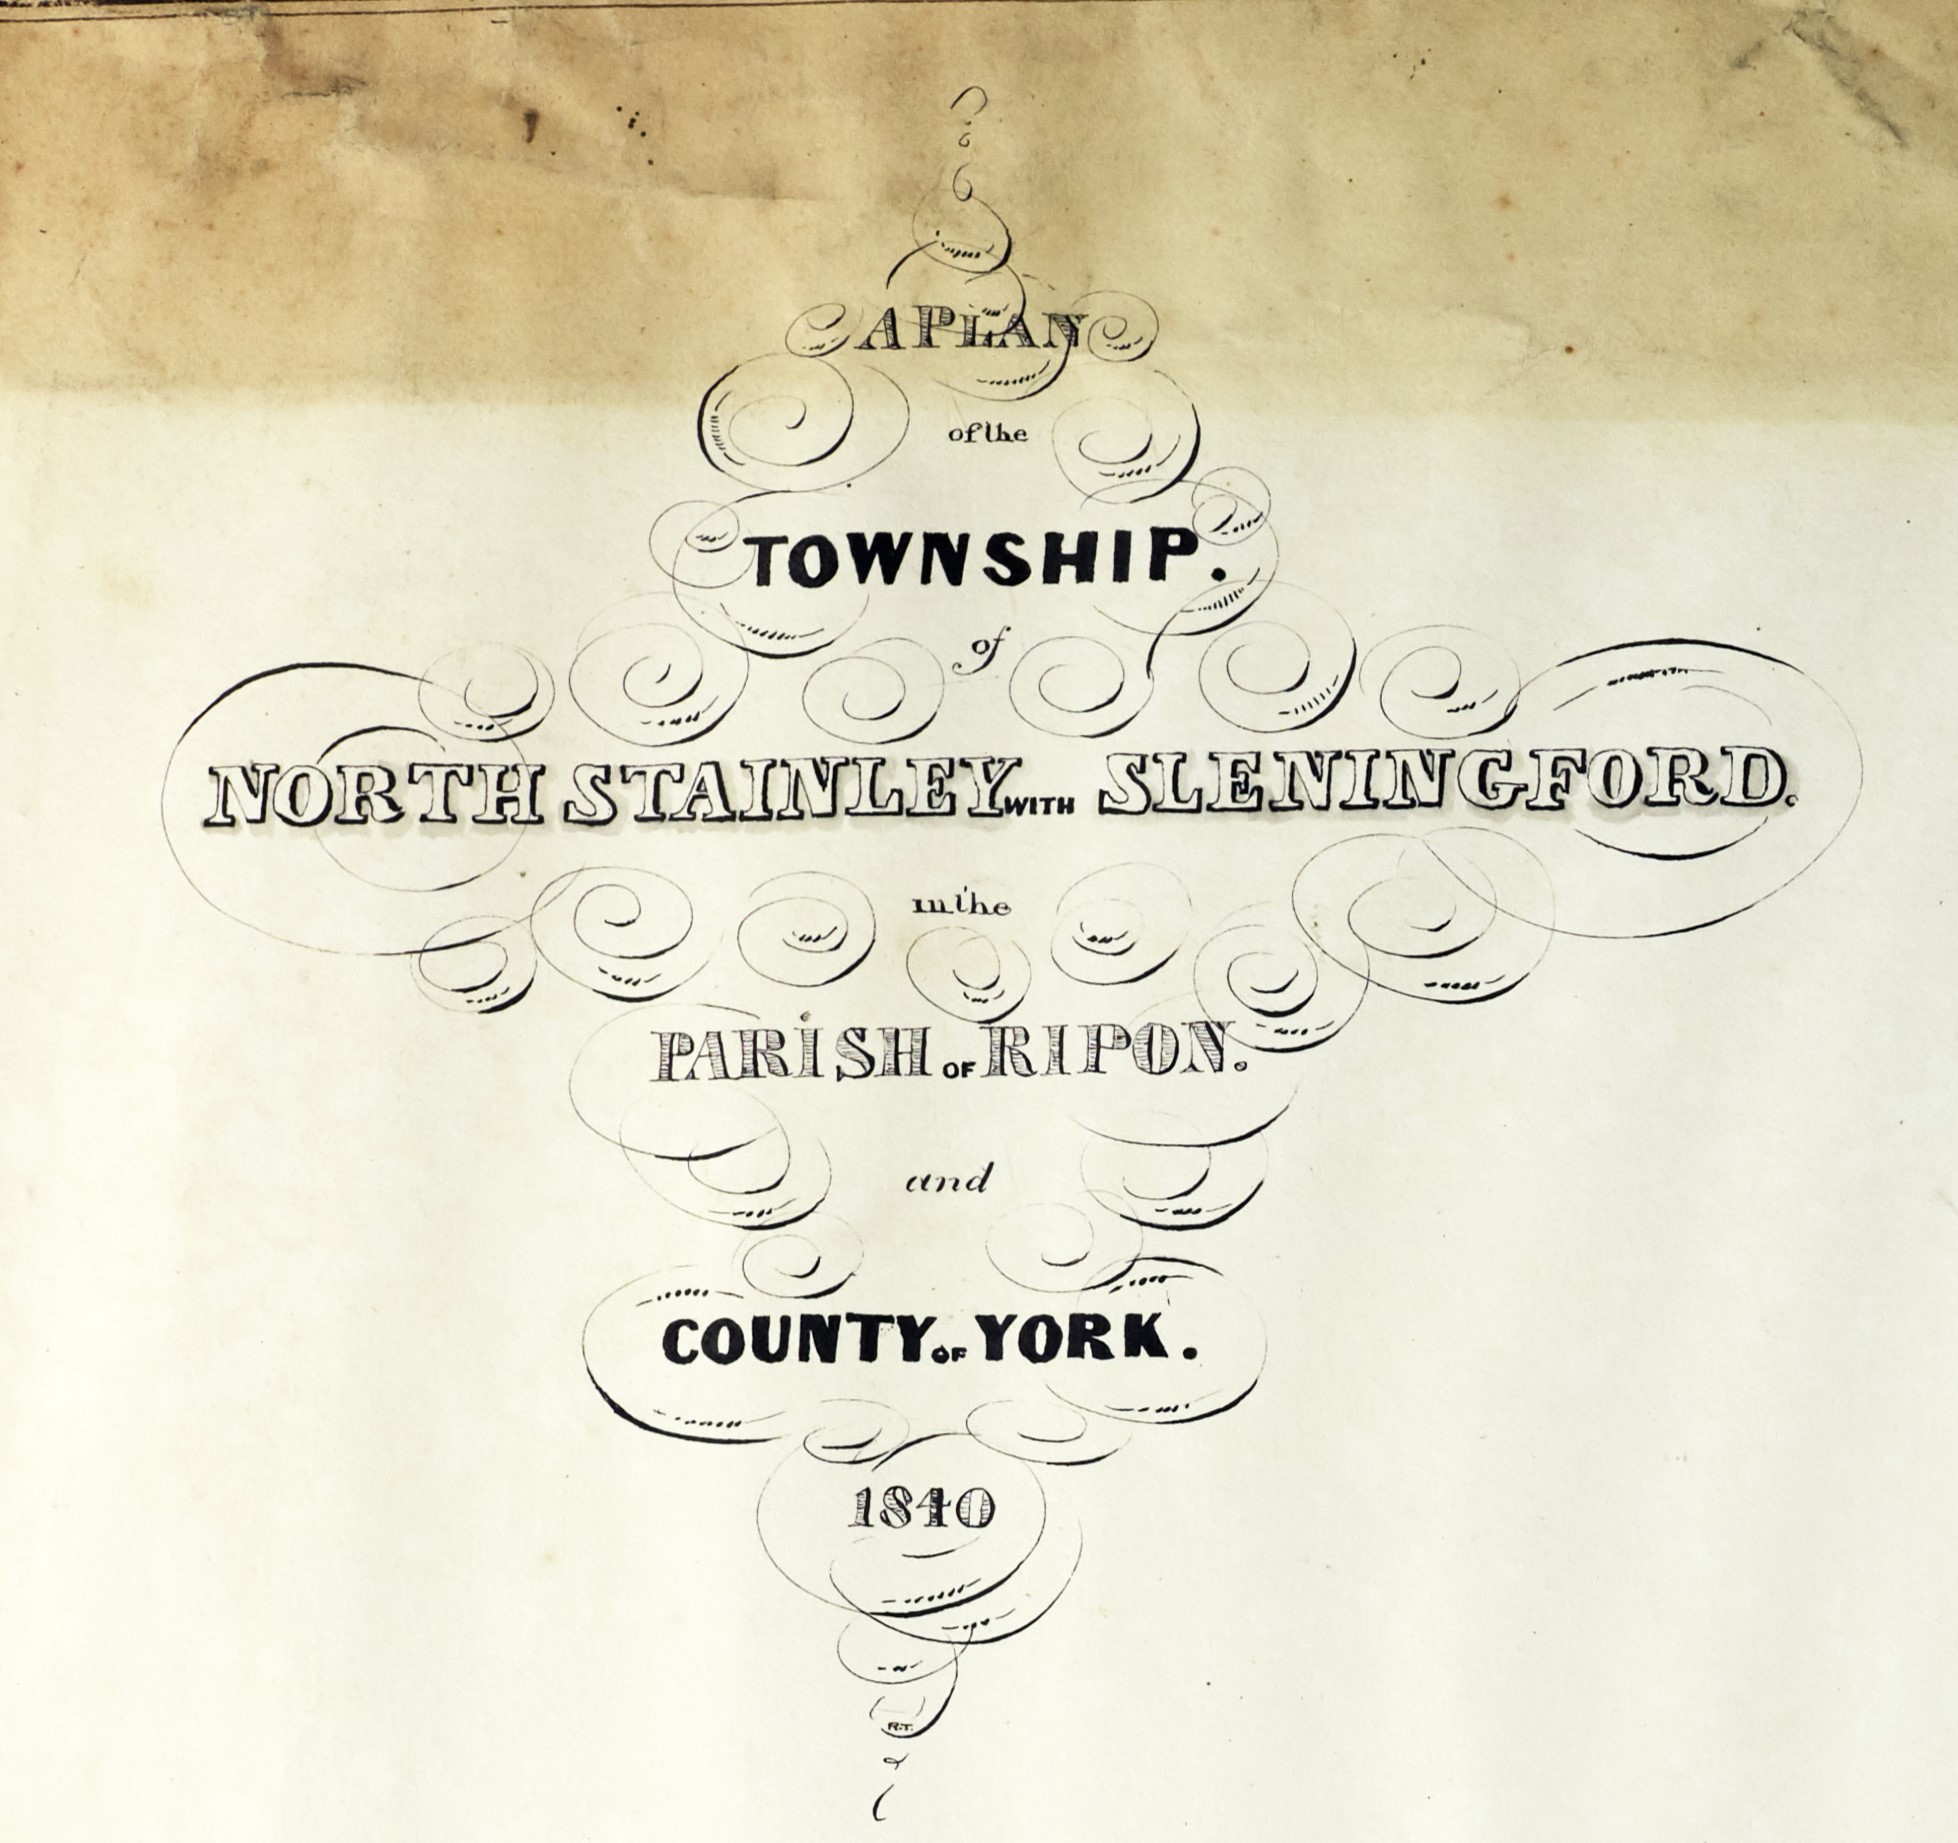 A PLAN
of the
TOWNSHIP.
of
NORTH STAINLEY WITH SLENINGFORD.
in the
PARISH OF RIPON.
and
COUNTY OF YORK.
1840
R.T.